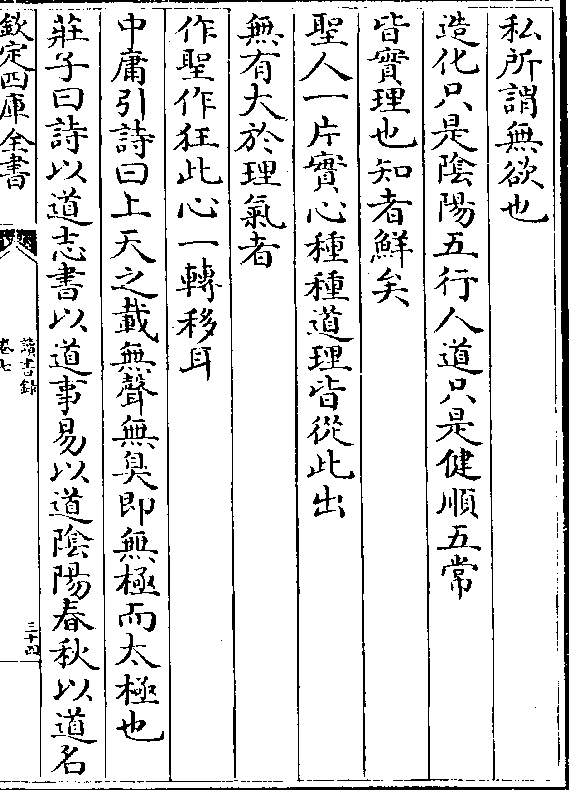 私所謂無欲也
造化只是陰陽五行人道只是健順五常
皆實理也知者鮮矣
聖人一片實心種種道理皆從此出
無有大於理氣者
作聖作狂此心一轉移耳
中庸引詩曰上天之載無聲無臭即無極而太極也
莊子曰詩以道志書以道事易以道陰陽春秋以道名
欽定四庫全書
讀書錄
卷七
三十四